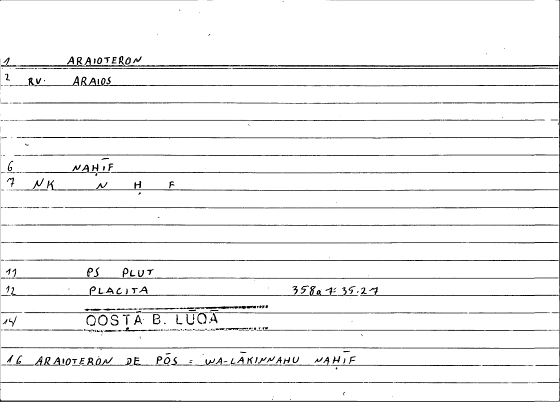 1 ARAIOTERON
2 RV. ARAIOS
6 NAḤĪF
7 NK N Ḥ F
11 PS PLUT
12 PLACITA 358a7=35.21
14 QOSṬĀ B. LŪQĀ
16 ARAIOTERON DE PŌS = WA-LĀKINNAHU NAḤĪF